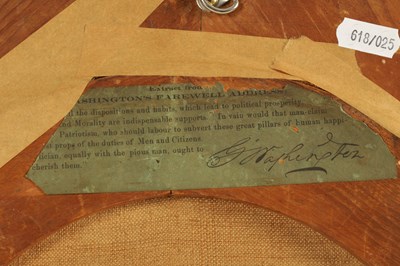 618/025
Extract from
WASHINGTON'S FAREWELL ADDRESS
all the dispositions and habits, which lead to political prosperity,
and Morality are indispensable supports. In vain would that man claim
Patriotism, who should labour to subvert these great pillars of human happi-
props of the duties of Men and Citizens
ician, equally with the pious man, ought to
cherish them.
G Washington